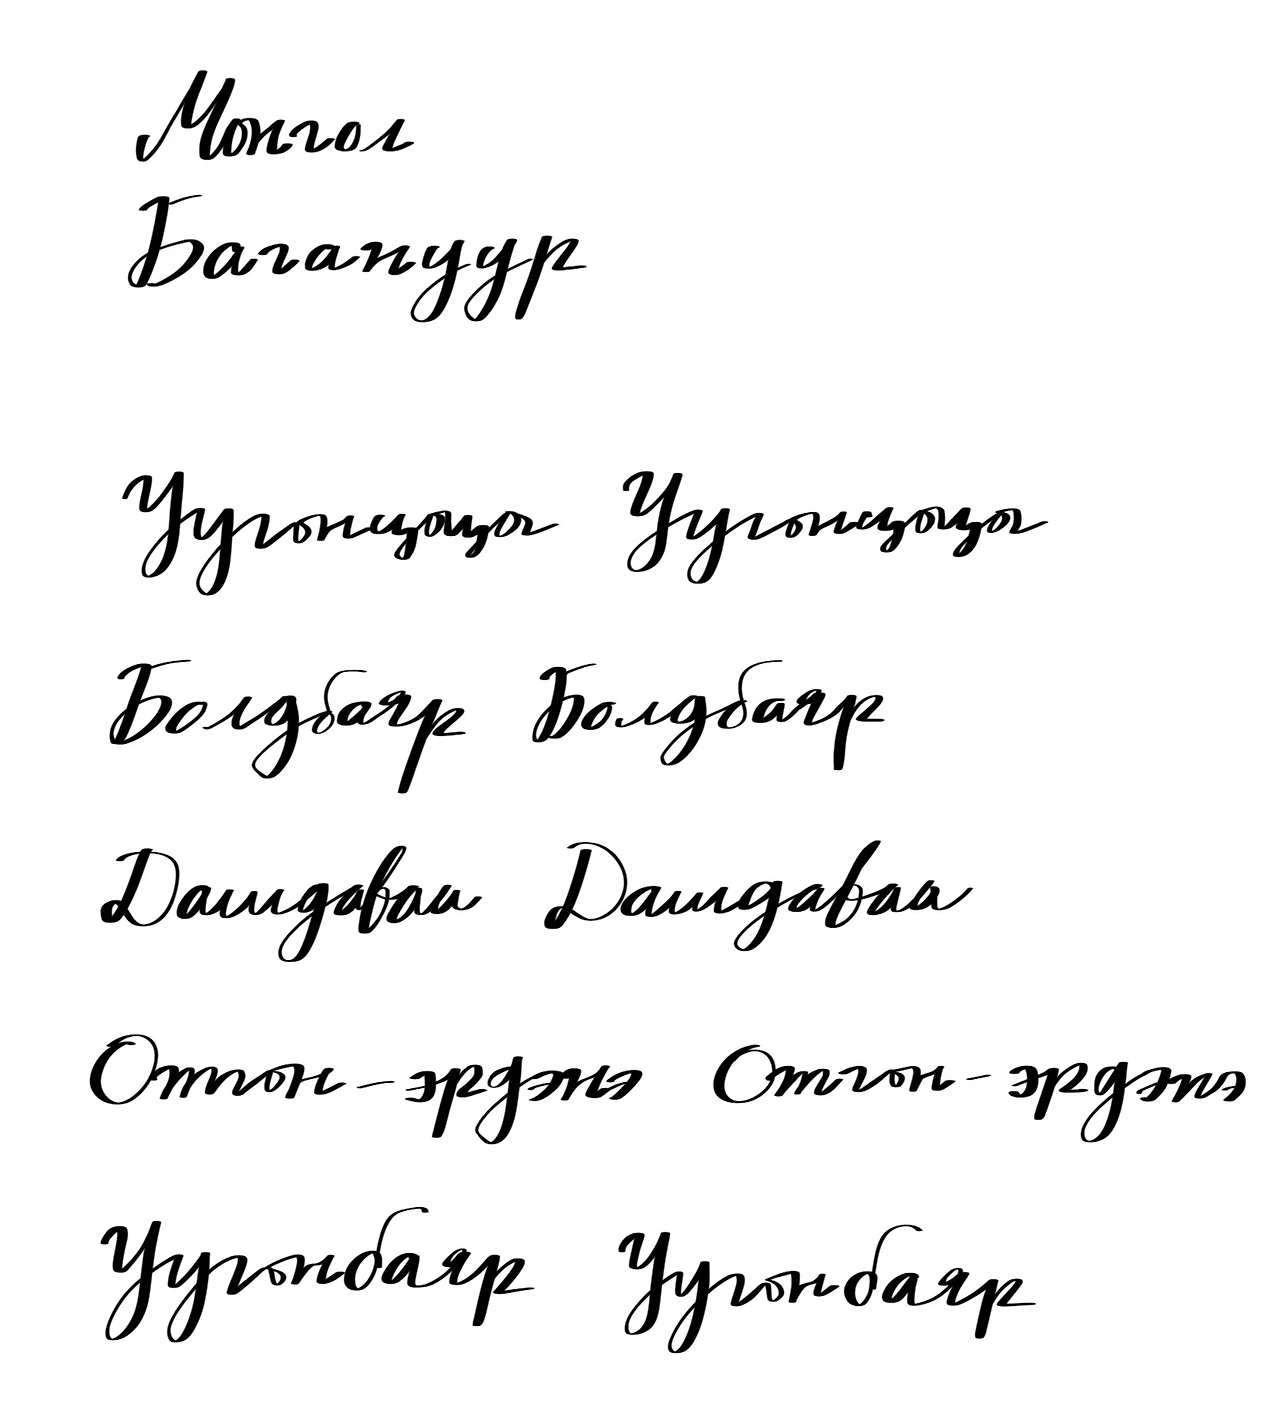 Монгол
Багануур
Уугонцоцо Уугонцоцо
Болдбаяр Болдбаяр
Дашдаваа Дашдаваа
Отгон-эрдэнэ Отгон-эрдэнэ
Уугонбаяр Уугонбаяр